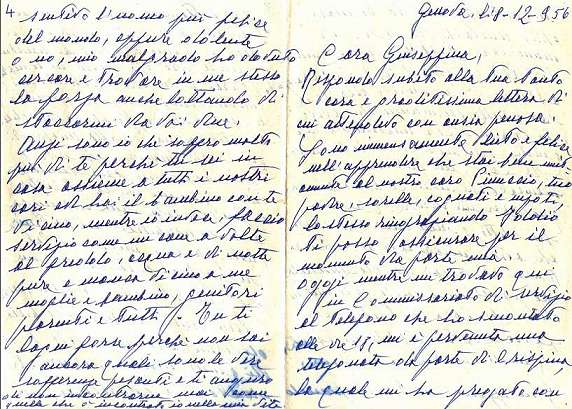 4 sentivo l'uomo più felice
del mondo, eppure volente
o no, mio malgrado ho dovuto
cercare e trovare in me stesso
la forza anche lottando di
staccarmi da voi due.
Anzi sono io che soffro molto
più di te perché tu sei in
casa assieme a tutti i nostri
cari ed hai il bambino con te
vicino, mentre io invece, faccio
servizio come un cane a volte
al freddo, acqua e di notte
pure e manca vicino a me
moglie e bambino, genitori
parenti e tutti. Tu ti
lagni forse perché non sai
ancora quali sono le vere
sofferenze pesanti e ti auguro
di non incontrarne mai come
quelle che ò incontrato io nella mia vita
Genova, li 8-12-956
Cara Giuseppina,
Rispondo subito alla tua tanto
cara e graditissima lettera di
cui attendevo con ansia penosa.
Sono immensamente lieto e felice
nell'apprendere che stai bene unit-
amente al nostro caro Pinuccio, tuo
padre, sorella, cognati e nipoti,
lo stesso ringraziando
ti posso assicurare per il
momento da parte mia
Oggi mentre mi trovavo qui
in Commissariato di servizio
al telefono che ho smontato
alle ore mi è pervenuta una
telefonata da parte di
la quale mi ha pregato con